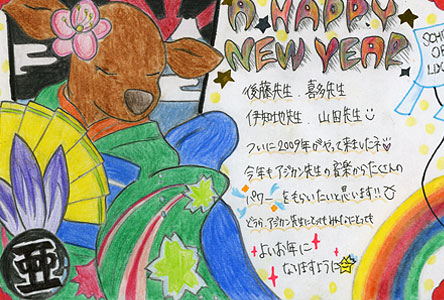 A HAPPY
NEW YEAR
SCH
OF
LOC
後藤先生、喜多先生
伊知地先生、山田先生
ついに2009年がやって来ましたネ
今年もアジカン先生の音楽からたくさんの
パワーをもらいたいと思います!!
どうか、アジカン先生にとってもみんなにとっても
よいお年に
なりますように
亜